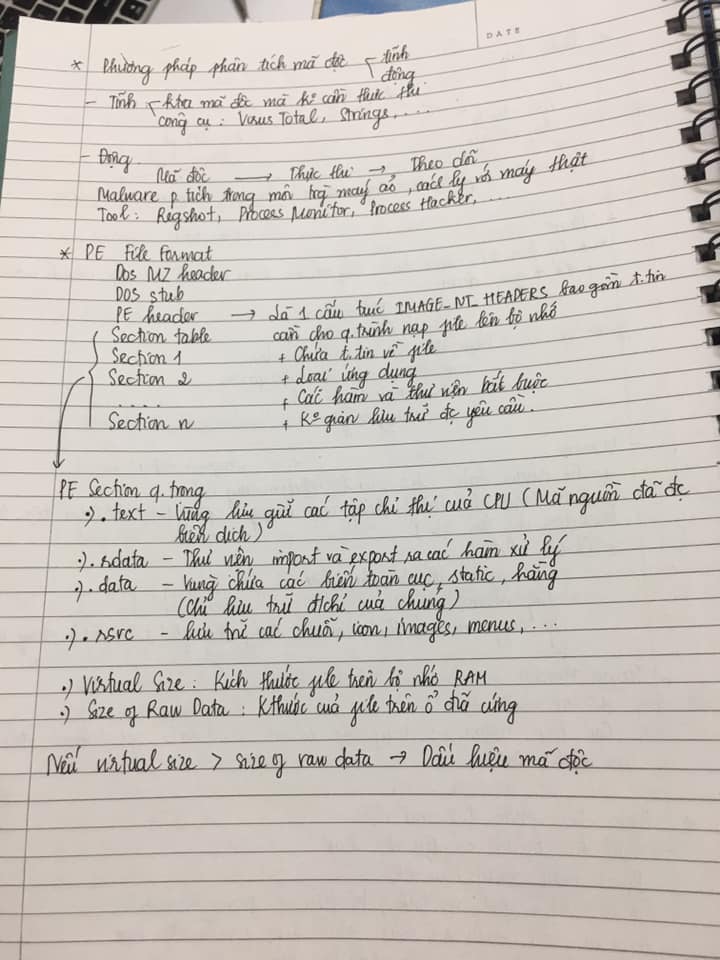 DATE
* Phương pháp phân tích mã độc < tĩnh
động
- Tĩnh < ktra mã độc mà ko cần thực thi
công cụ : Virus Total, Strings,....
- Động.
Mã độc → Thực thi → Theo dõi
Malware p tích trong môi trg máy ảo, cách ly với máy thật
Tool : Regshot, Process Monitor, Process Hacker,....
* PE File Format
Dos MZ header
DOS stub
PE header → Là 1 cấu trúc IMAGE_NT_HEADERS bao gồm t.tin
Section table cần cho q.trình nạp file lên bộ nhớ
Section 1 + Chứa t.tin về file
Section 2 + Loại ứng dụng
.... + Các hàm và thư viện bắt buộc
Section n + Ko gian lưu trữ đc yêu cầu.
PE Section q.trọng
.) .text - Vùng lưu giữ các tập chỉ thị của CPU (Mã nguồn đã đc
biên dịch)
.) .rdata - Thư viện import và export ra các hàm xử lý
.) .data - Vùng chứa các biến toàn cục, static, hằng
(Chỉ lưu trữ đ/chỉ của chúng)
.) .rsrc - lưu trữ các chuỗi, icon, images, menus,...
.) Virtual Size : Kích thước file trên bộ nhớ RAM
.) Size of Raw Data : Kthước của file trên ổ đĩa cứng
Nếu virtual size > size of raw data → Dấu hiệu mã độc